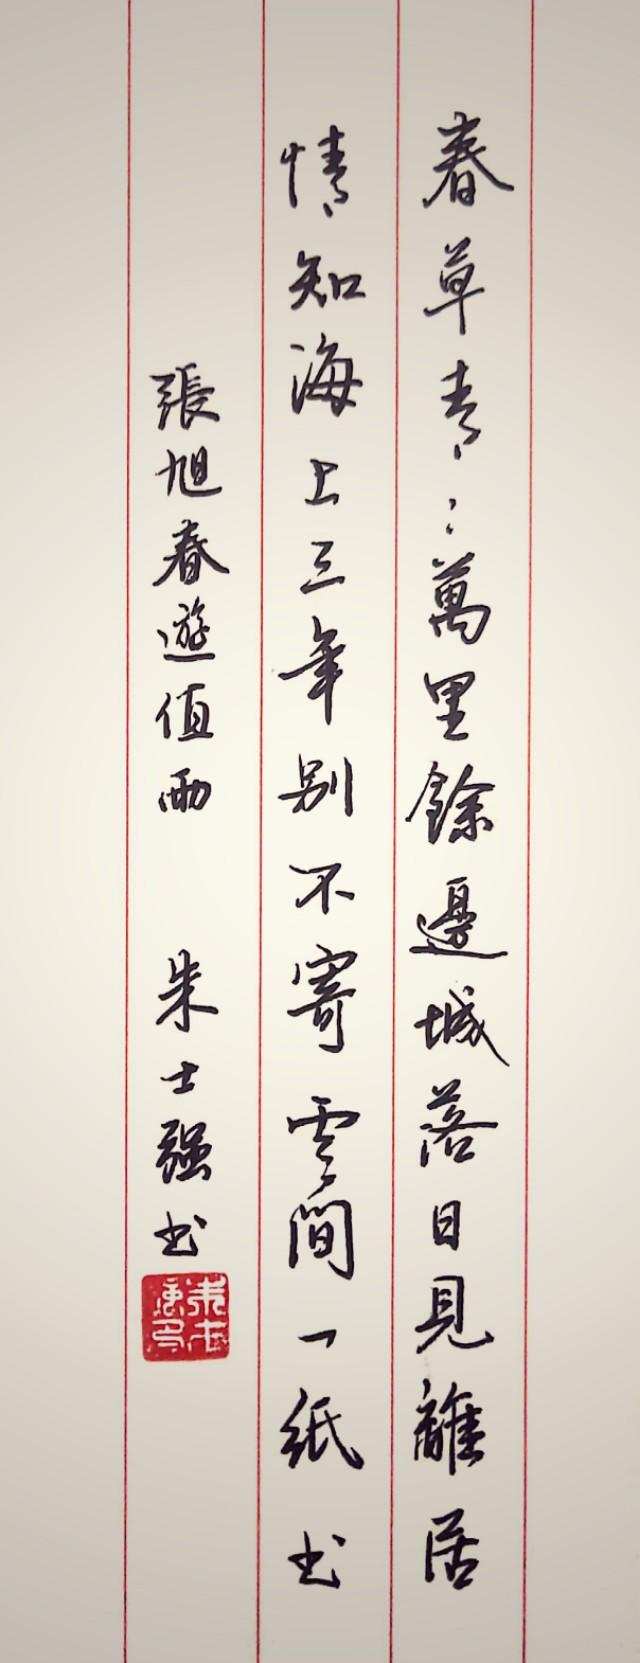 春草青〻萬里餘邊城落日見離居
情知海上三年别不寄雲間一紙书
張旭春遊值雨 朱士强书